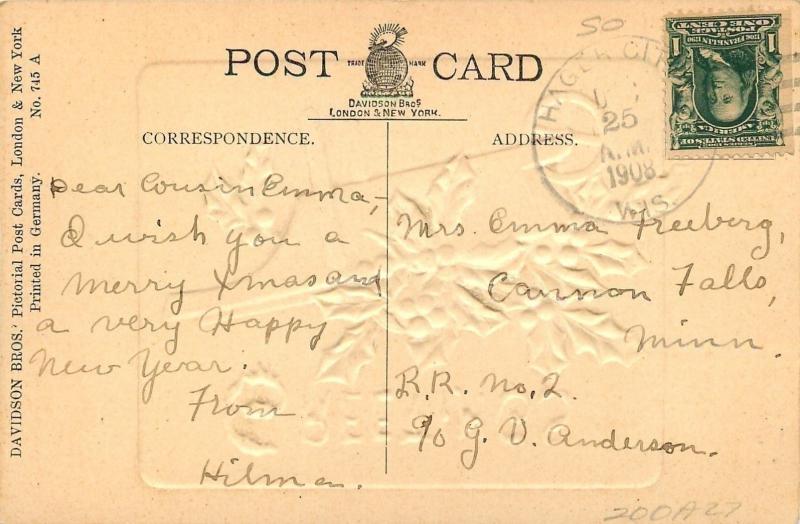 DAVIDSON BROS.' Pictorial Post Cards, London & New York
Printed in Germany. No. 745 A
POST CARD
TRADE MARK
DAVIDSON BROS
LONDON & NEW YORK.
CORRESPONDENCE.
ADDRESS.
Dear Cousin Emma,-
I wish you a
Merry Xmas and
a very Happy
New Year.
From
Hilma.
Mrs. Emma Freeberg,
Cannon Falls,
Minn.
R.R. No. 2.
c/o G. V. Anderson.
HAGER CITY
25
A.M.
1908
WIS.
POSTAGE
ONE CENT
1 1
1706 FRANKLIN 1790
UNITED STATES OF
AMERICA
SERIES 1902
50
200A27